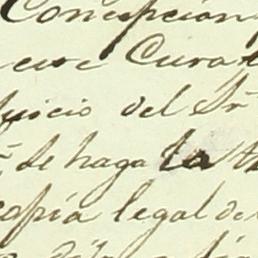 Concepcion
Cura
juicio del Sr
se haga la
copia legal de